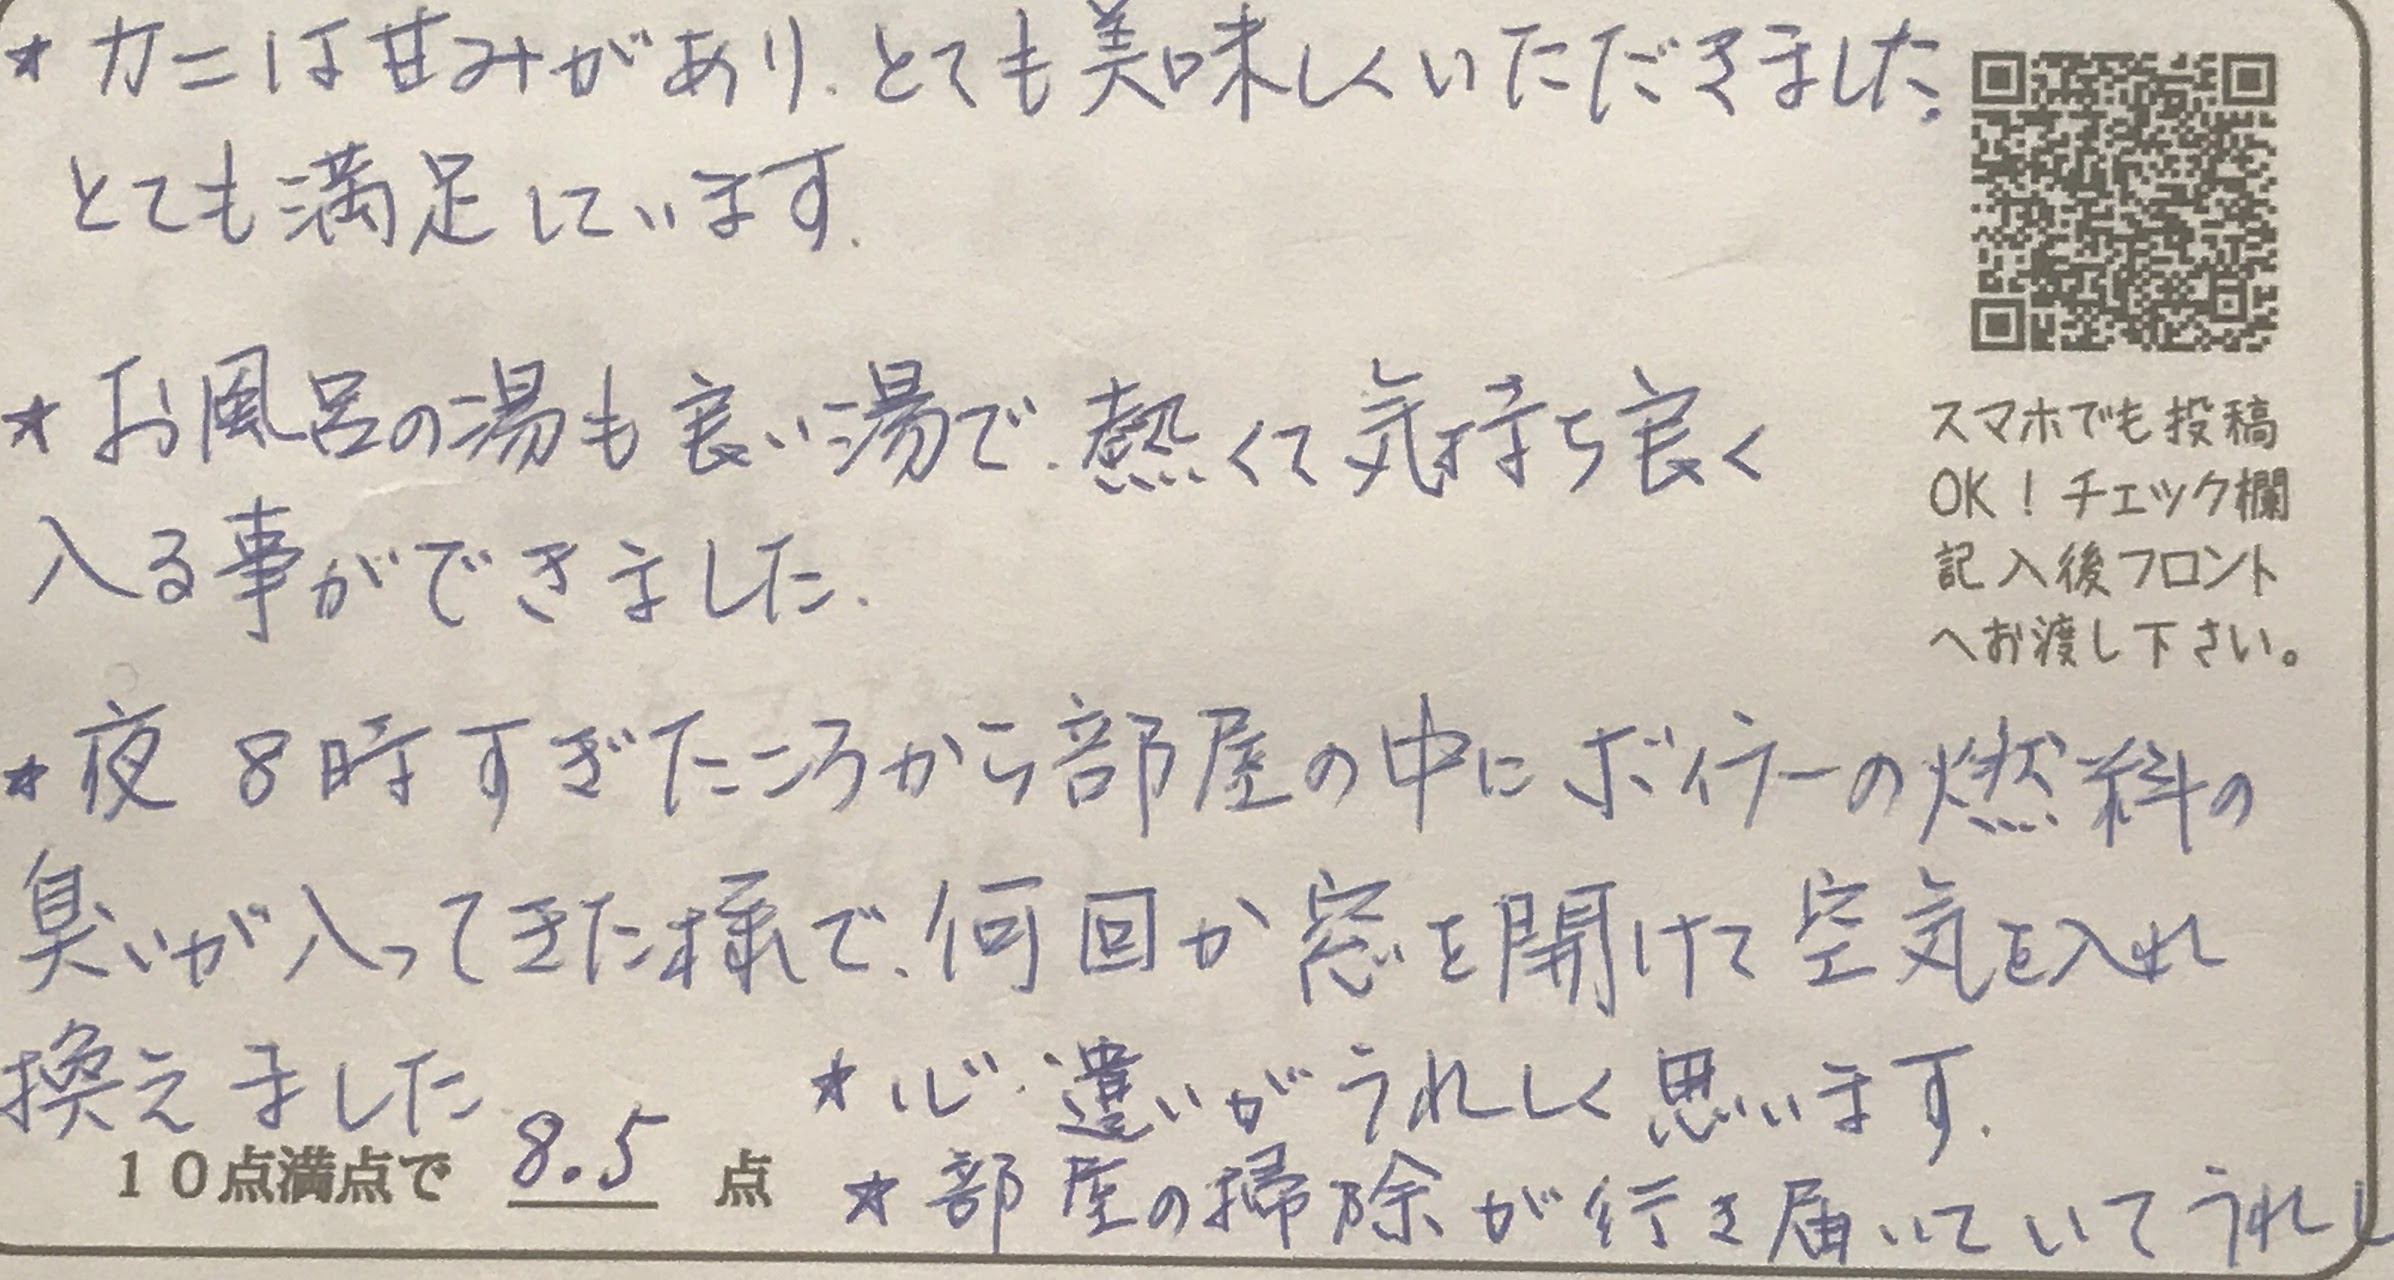 ★カニは甘みがあり、とても美味しくいただきました。
とても満足しています。
★お風呂の湯も良い湯で、熱くて気持ち良く
入る事ができました。
★夜8時すぎたころから部屋の中にボイラーの燃料の
臭いが入ってきた様で、何回か窓を開けて空気を入れ
換えました。
★心遣いがうれしく思います。
10点満点で 8.5 点
★部屋の掃除が行き届いていてうれし
スマホでも投稿
OK！チェック欄
記入後フロント
へお渡し下さい。